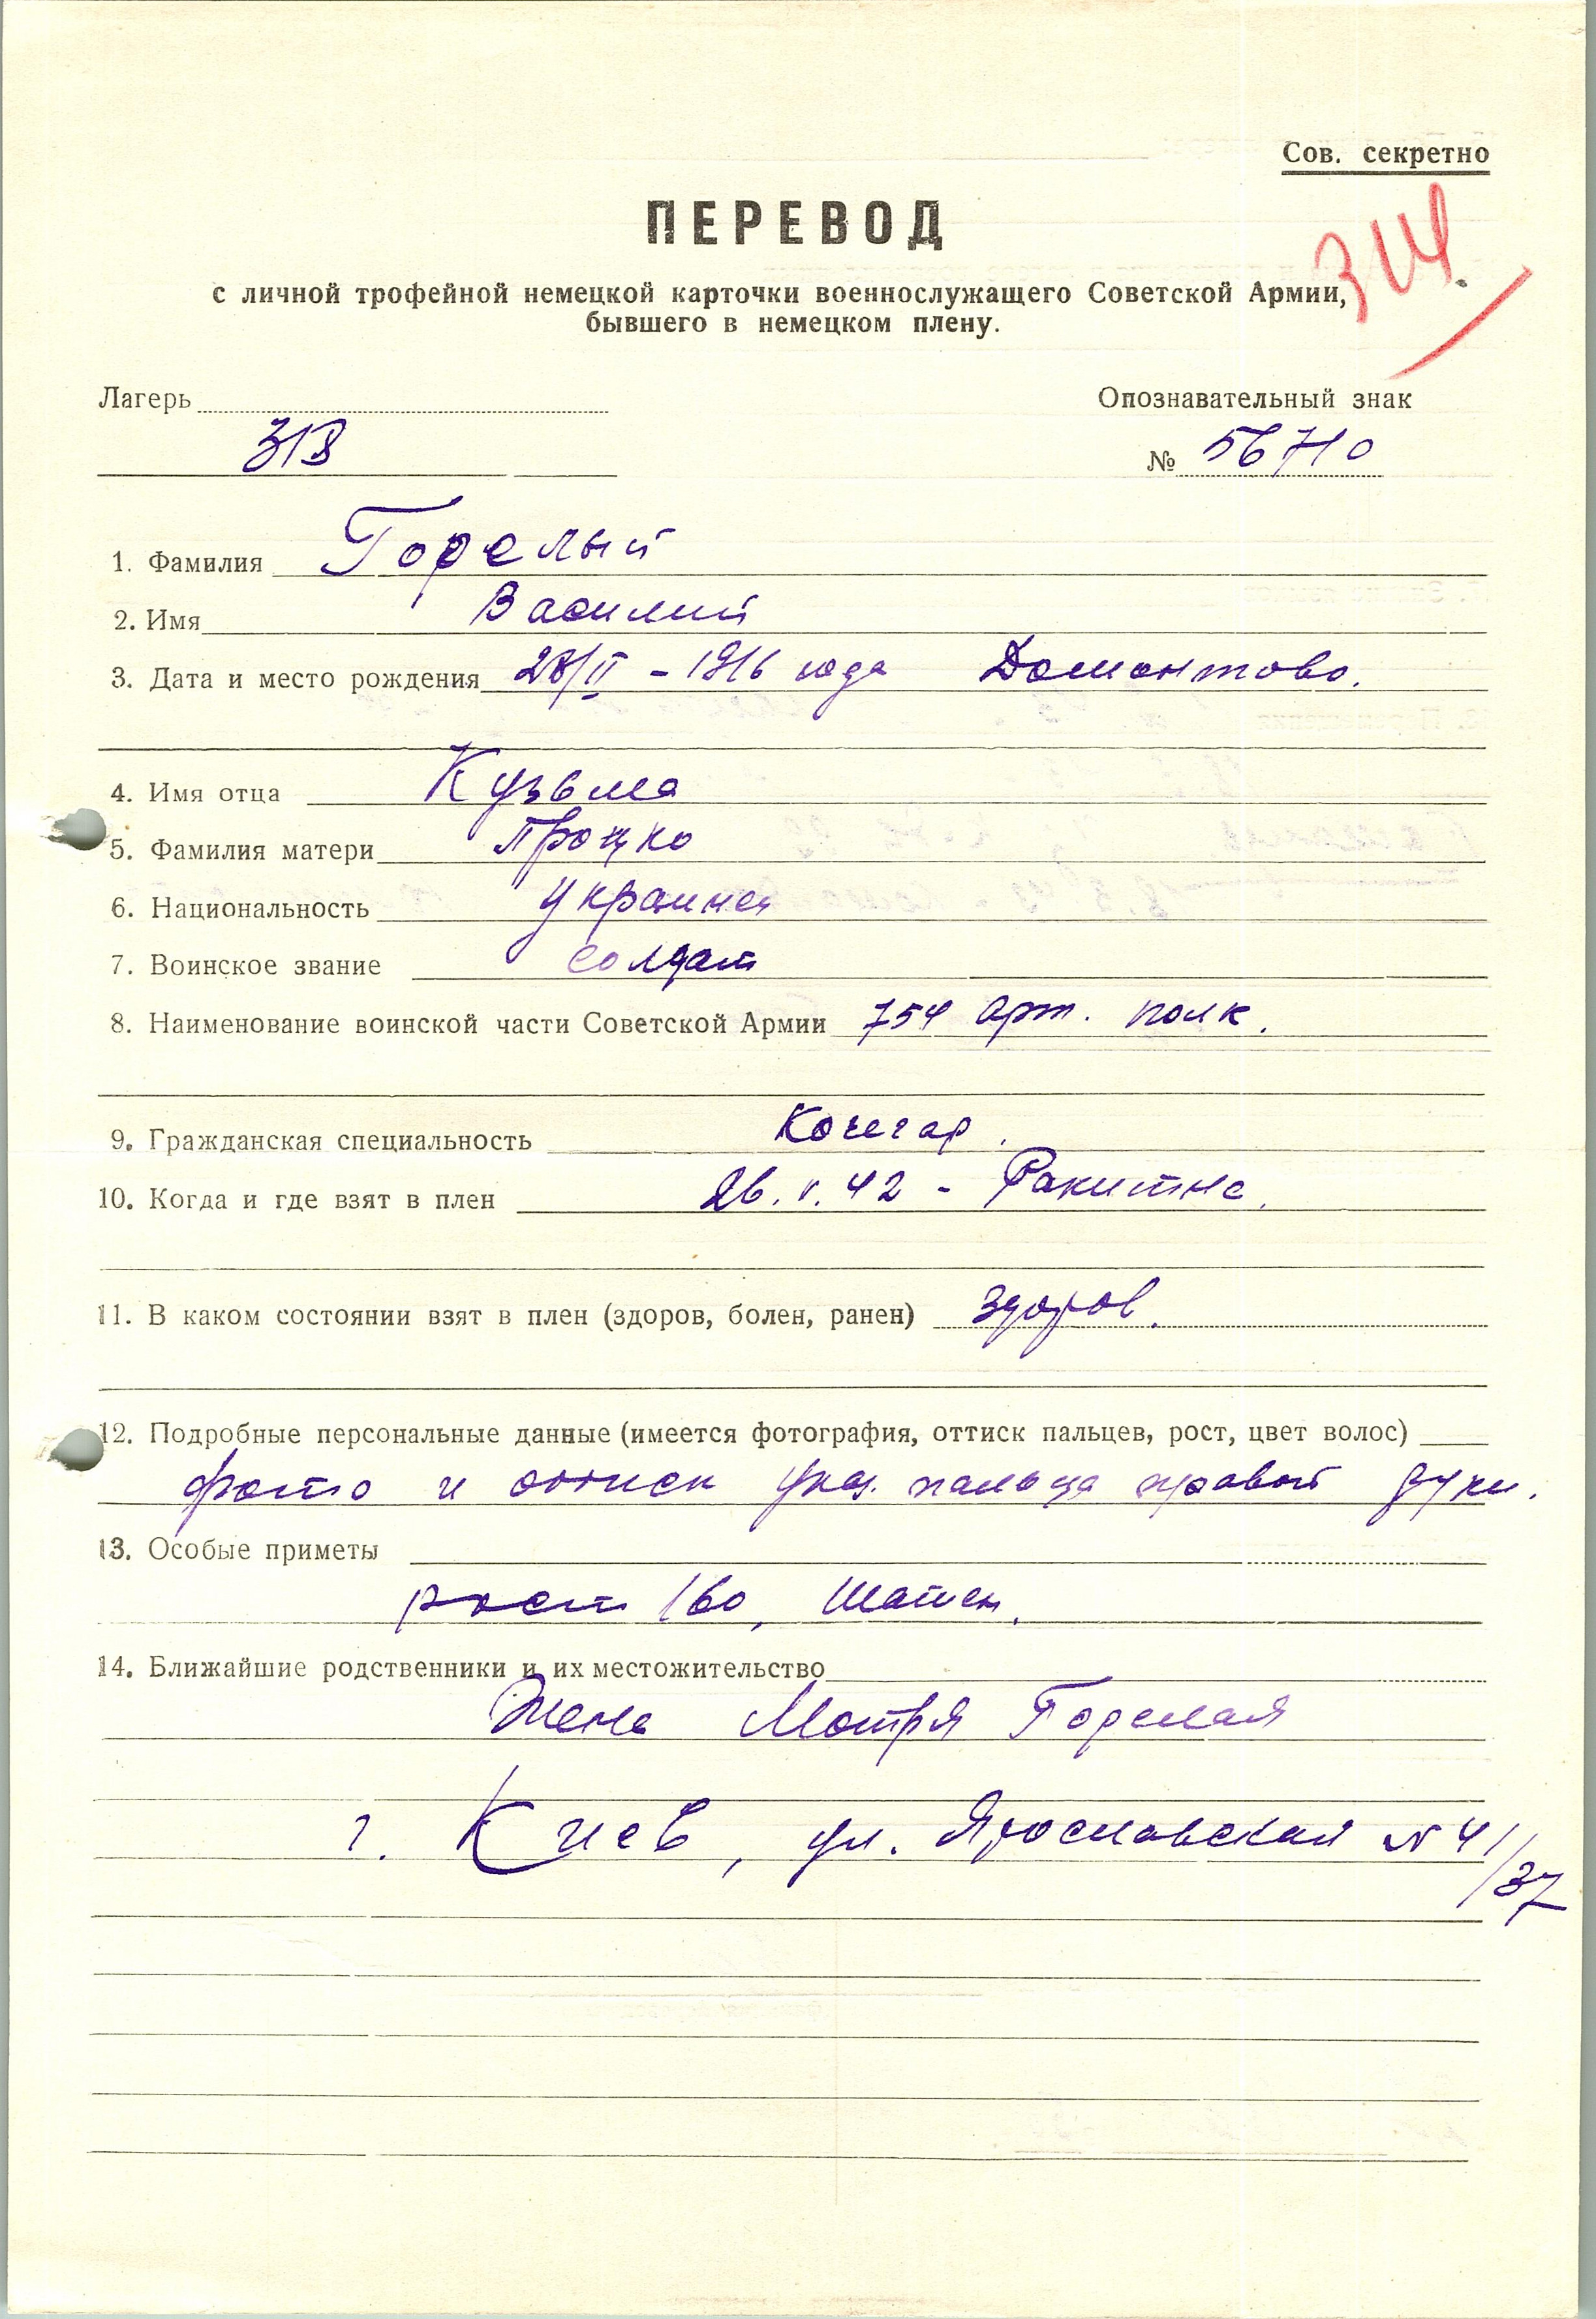 Сов. секретно
ПЕРЕВОД
314.
с личной трофейной немецкой карточки военнослужащего Советской Армии,
бывшего в немецком плену.
Лагерь Опознавательный знак
318 № 56710
1. Фамилия Горелый
2. Имя Василий
3. Дата и место рождения 28/II - 1916 года Домонтово.
4. Имя отца Кузьма
5. Фамилия матери Процко
6. Национальность украинец
7. Воинское звание солдат
8. Наименование воинской части Советской Армии 754 арт. полк.
9. Гражданская специальность Кочегар.
10. Когда и где взят в плен 26.V.42 - Ракитне.
11. В каком состоянии взят в плен (здоров, болен, ранен) здоров.
12. Подробные персональные данные (имеется фотография, оттиск пальцев, рост, цвет волос)
фото и оттиск указ. пальца правой руки.
13. Особые приметы
рост 160, шатен.
14. Ближайшие родственники и их местожительство
Жена Мотря Горелая
г. Киев, ул. Ярославская № 41/37